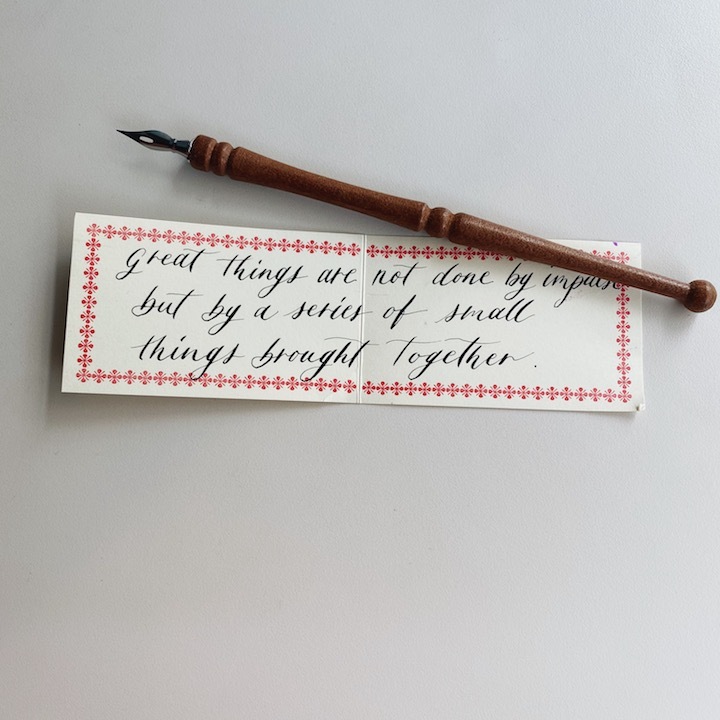 great things are not done by impulse
but by a series of small
things brought together.